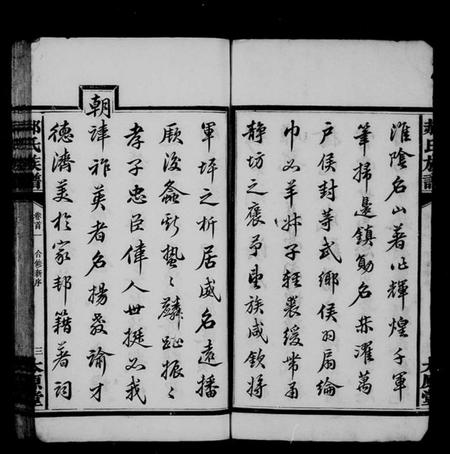 淮陰名山著作輝煌千軍
筆掃邊鎮勛名赫濯萬
戶侯封等武鄉侯羽扇綸
巾心羊叔子輕裘緩帶甬
靜坊之褒予聖族咸欽將
軍坪之析居威名遠播
厥後螽斯蟄蟄麟趾振振
孝子忠臣偉人世挺如我
朝諱祚英者名揚 諭才
德濟美於家邦籍著詞
郝氏族譜
卷首
合修新序
三
太原堂